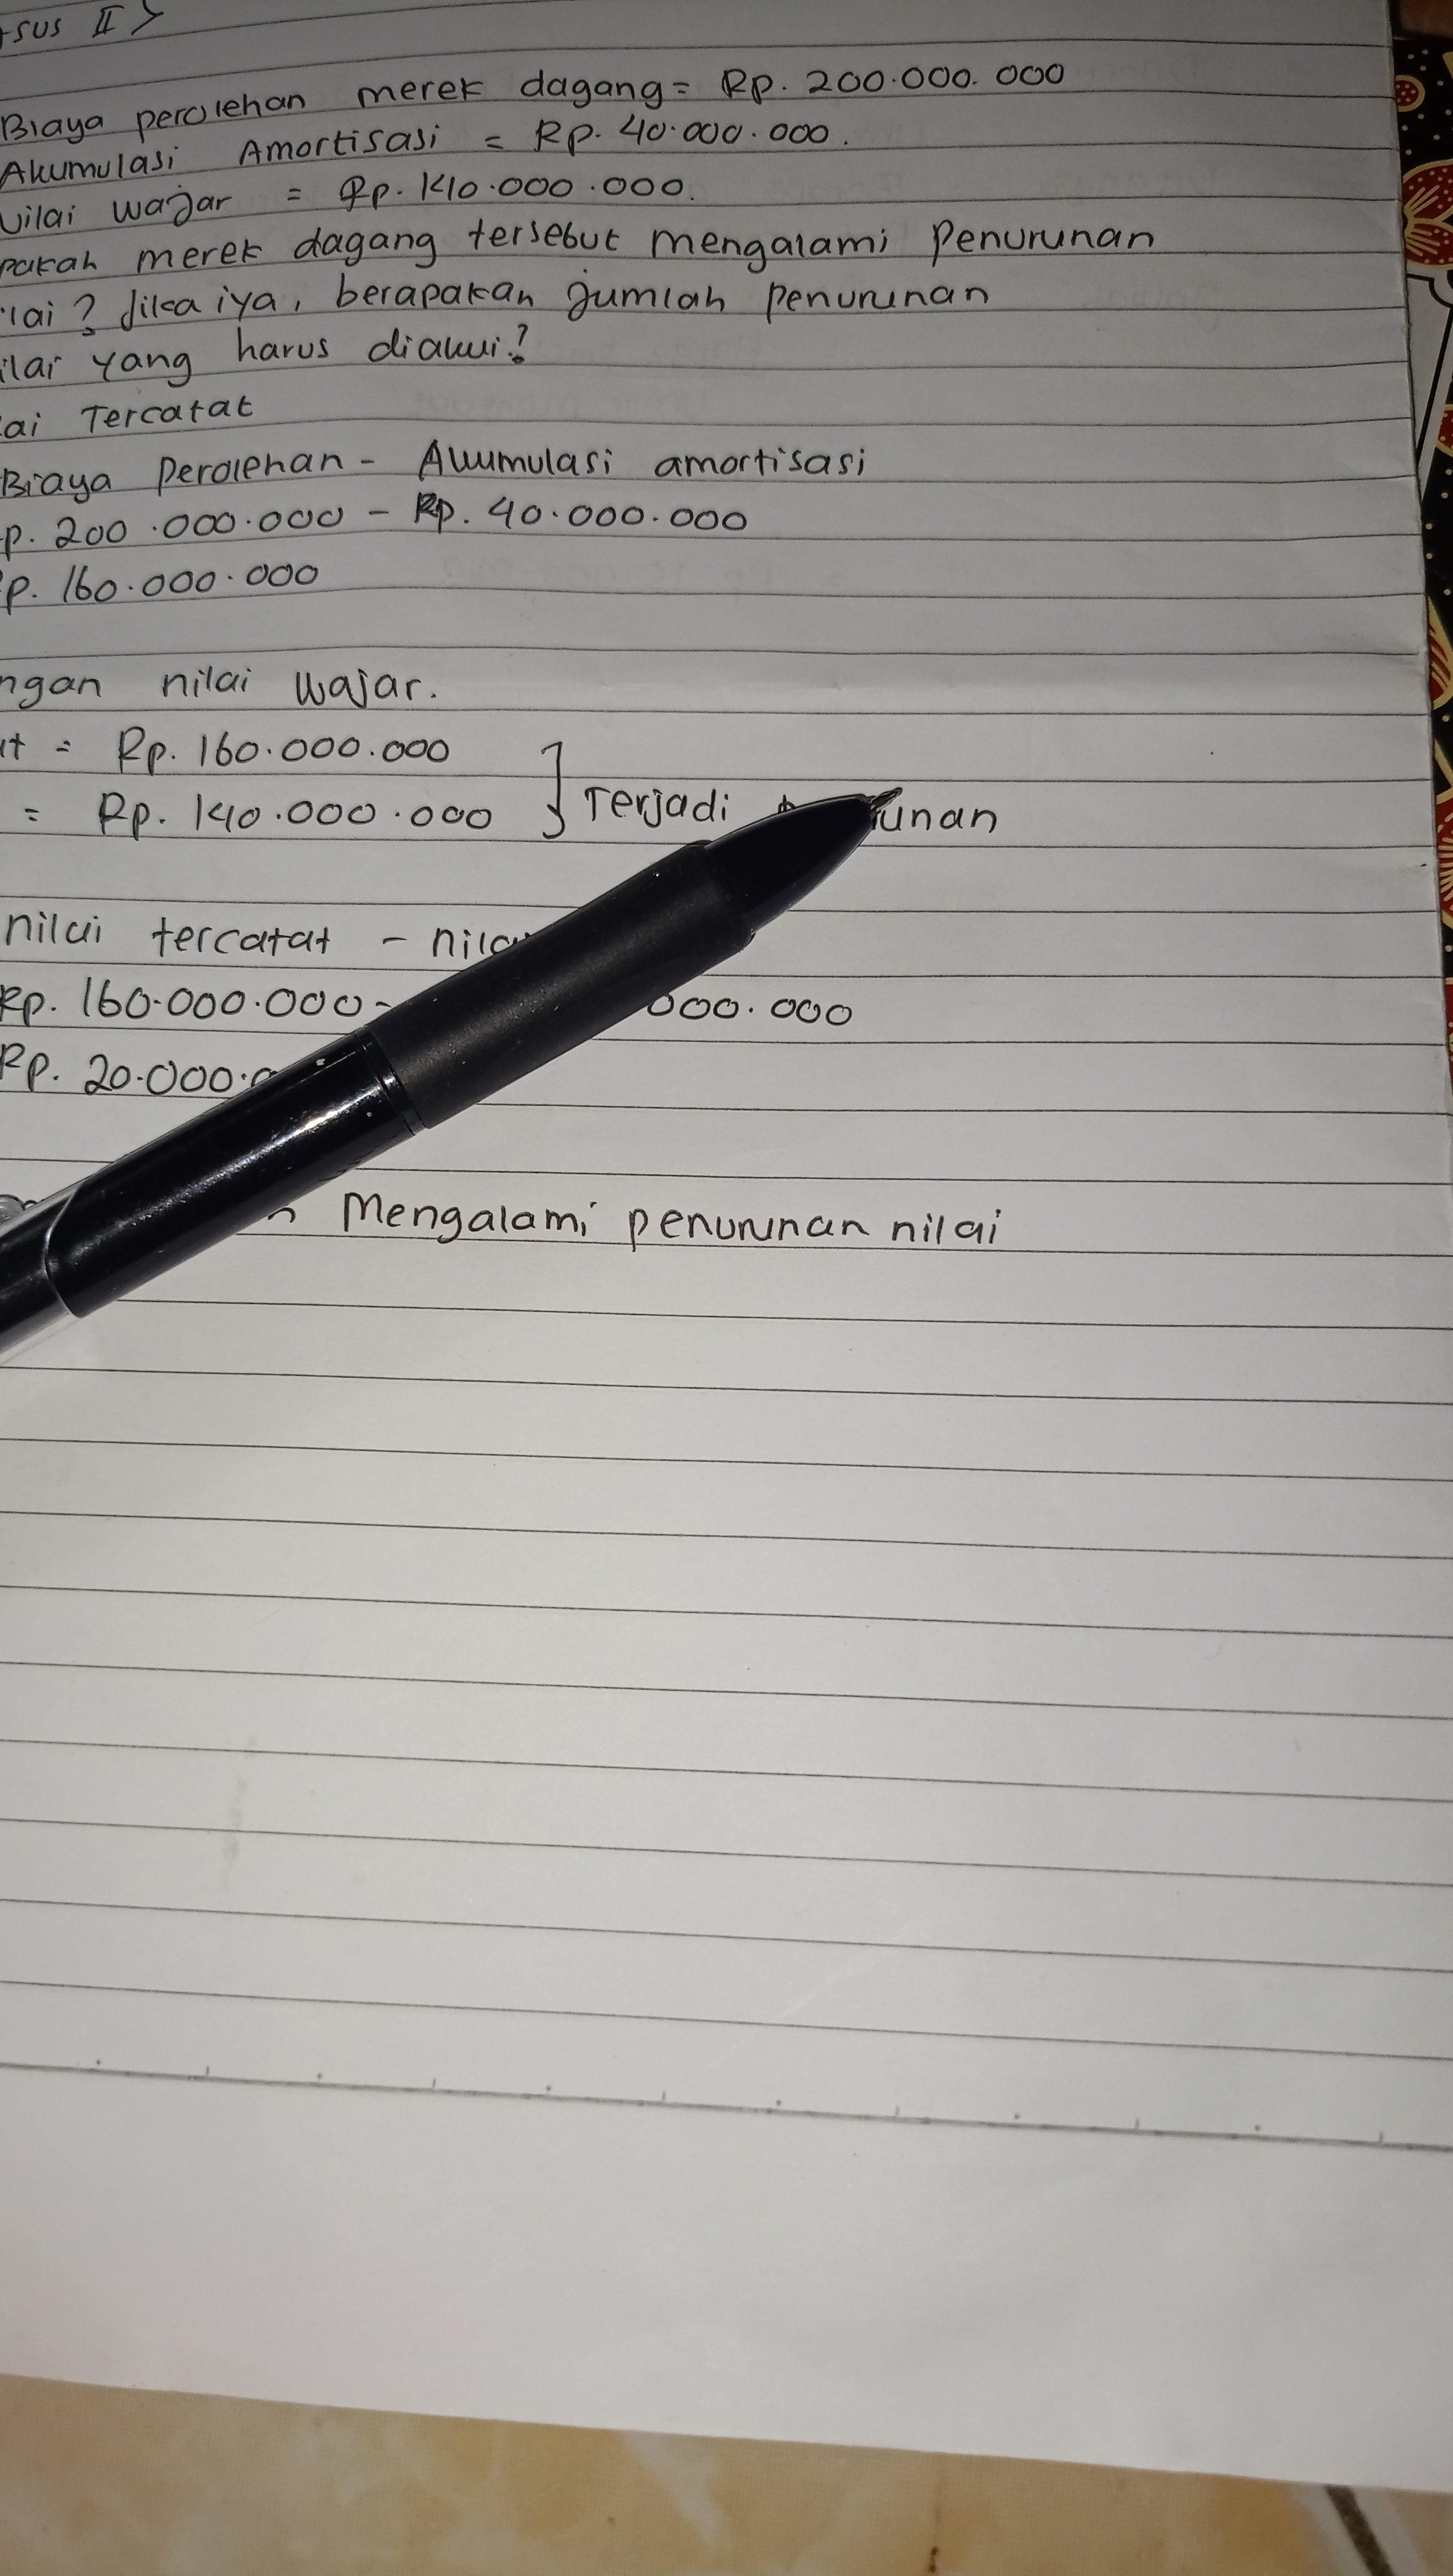 sus II >
Biaya perolehan merek dagang = Rp. 200.000.000
Akumulasi Amortisasi = Rp. 40.000.000.
Nilai wajar = Rp. 140.000.000.
pakah merek dagang tersebut mengalami penurunan
lai? Jika iya, berapakah jumlah penurunan
ilai yang harus diakui?
ai Tercatat
Biaya Perolehan - Akumulasi amortisasi
p. 200.000.000 - Rp. 40.000.000
p. 160.000.000
ngan nilai wajar.
at = Rp. 160.000.000
= Rp. 140.000.000 } Terjadi unan
nilai tercatat - nila
Rp. 160.000.000 - 000.000
Rp. 20.000.0
n Mengalami penurunan nilai